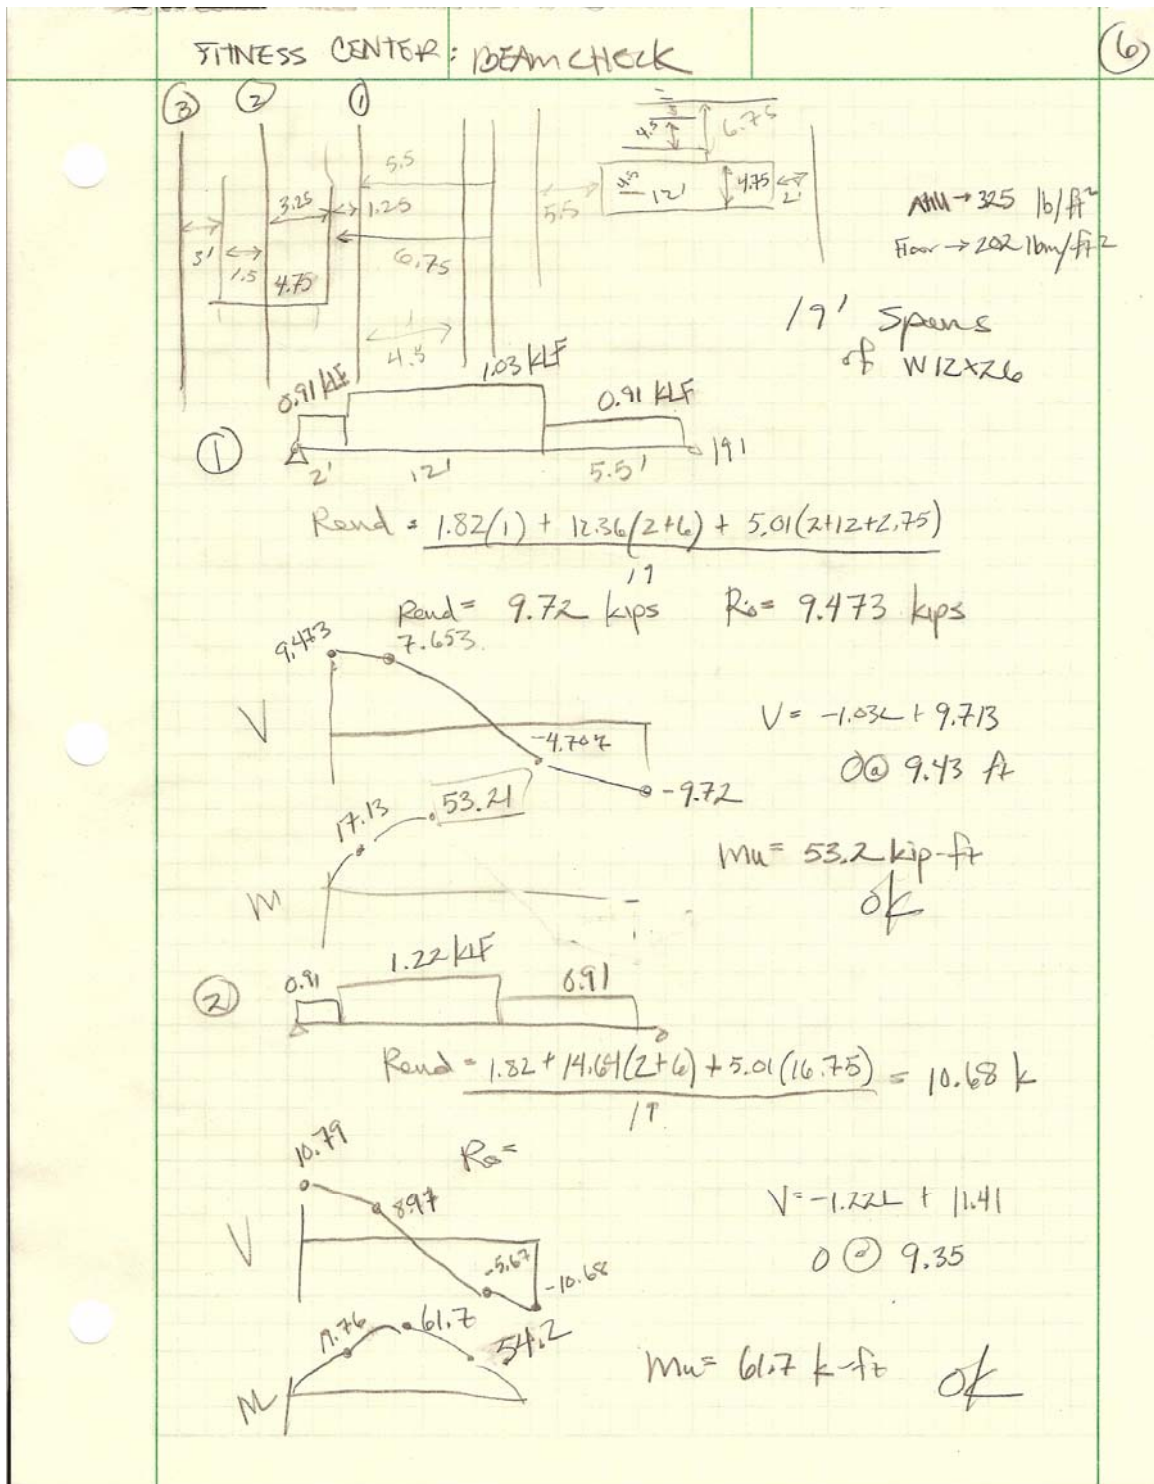 FITNESS CENTER: BEAM CHECK
6
3 2 1
5.5
3.25 1.25
6.75
3' 1.5 4.75
4.5
4.5 6.75
5.5 4.5 12' 4.75 2'
AHU → 325 lb/ft²
Floor → 202 lbm/ft²
19' Spans
of W12x26
1
0.91 KLF 1.03 KLF 0.91 KLF
2' 12' 5.5' 19'
Rend = 1.82(1) + 12.36(2+6) + 5.01(2+12+2.75)
19
Rend = 9.72 kips Ro = 9.473 kips
V
9.473 7.653 -4.707 -9.72
V = -1.03L + 9.713
0 @ 9.43 ft
M
17.13 53.21
Mu = 53.2 kip-ft
ok
2
0.91 1.22 KLF 0.91
Rend = 1.82 + 14.64(2+6) + 5.01(16.75) = 10.68 k
19
Ro =
V
10.79 8.97 -5.67 -10.68
V = -1.22L + 11.41
0 @ 9.35
M
61.7 54.2
Mu = 61.7 k-ft ok